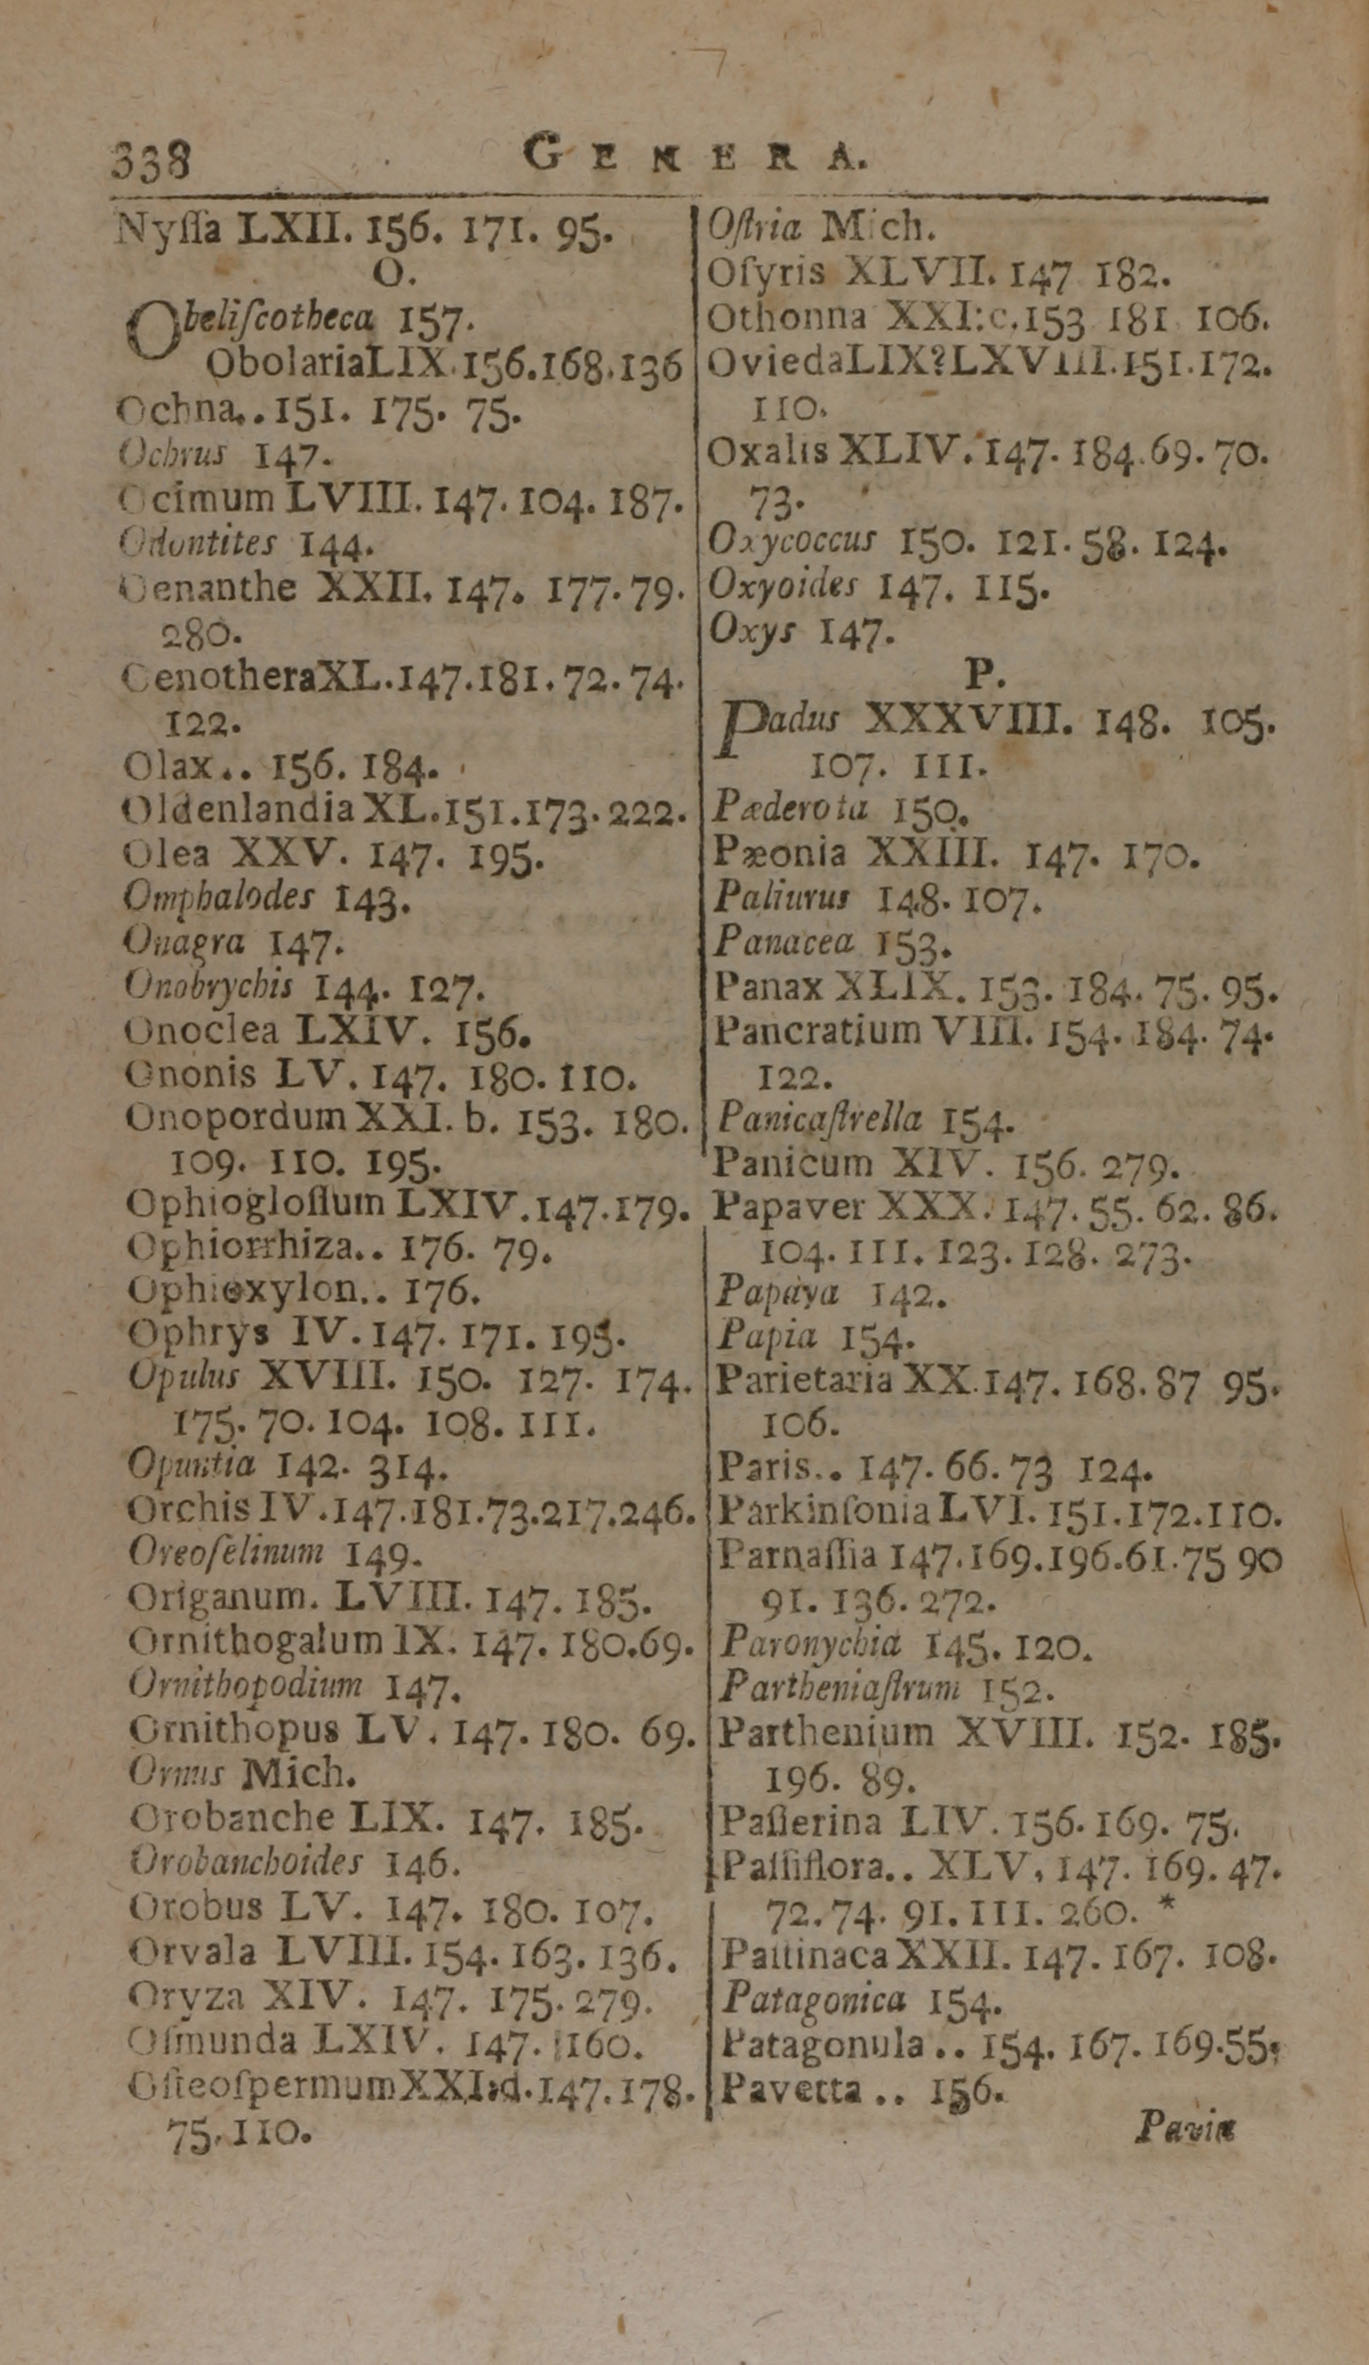 338 GENERA.
Nyſſa LXII. 156. 171. 95.
O.
Obeliſcotheca 157.
ObolariaLIX.156.168.136
Ochna..151. 175. 75.
Ochrus 147.
Ocimum LVIII. 147. 104. 187.
Odontites 144.
Oenanthe XXII. 147. 177. 79.
280.
OenotheraXL.147.181.72.74.
122.
Olax.. 156. 184.
Oldenlandia XL.151.173.222.
Olea XXV. 147. 195.
Omphalodes 143.
Onagra 147.
Onobrychis 144. 127.
Onoclea LXIV. 156.
Ononis LV. 147. 180. 110.
Onopordum XXI. b. 153. 180.
109. 110. 195.
Ophiogloſſum LXIV.147.179.
Ophiorrhiza.. 176. 79.
Ophioxylon.. 176.
Ophrys IV. 147. 171. 195.
Opulus XVIII. 150. 127. 174.
175. 70. 104. 108. 111.
Opuntia 142. 314.
Orchis IV.147.181.73.217.246.
Oreoſelinum 149.
Origanum. LVIII. 147. 185.
Ornithogalum IX. 147. 180.69.
Ornithopodium 147.
Ornithopus LV. 147. 180. 69.
Ornus Mich.
Orobanche LIX. 147. 185.
Orobanchoides 146.
Orobus LV. 147. 180. 107.
Orvala LVIII. 154. 163. 136.
Oryza XIV. 147. 175. 279.
Oſmunda LXIV. 147. 160.
OſteoſpermumXXI:d.147.178.
75. 110.
Oſtria Mich.
Oſyris XLVII. 147 182.
Othonna XXI:c.153 181 106.
OviedaLIX?LXVIII.151.172.
110.
Oxalis XLIV. 147. 184.69. 70.
73.
Oxycoccus 150. 121. 58. 124.
Oxyoides 147. 115.
Oxys 147.
P.
Padus XXXVIII. 148. 105.
107. 111.
Pæderota 150.
Pæonia XXIII. 147. 170.
Paliurus 148. 107.
Panacea 153.
Panax XLIX. 153. 184. 75. 95.
Pancratium VIII. 154. 184. 74.
122.
Panicaſtrella 154.
Panicum XIV. 156. 279.
Papaver XXX. 147. 55. 62. 86.
104. 111. 123. 128. 273.
Papaya 142.
Papia 154.
Parietaria XX.147. 168. 87 95.
106.
Paris.. 147. 66. 73 124.
Parkinſonia LVI. 151.172.110.
Parnaſſia 147.169.196.61.75 90
91. 136. 272.
Paronychia 145. 120.
Partheniaſtrum 152.
Parthenium XVIII. 152. 185.
196. 89.
Paſſerina LIV. 156. 169. 75.
Paſſiflora.. XLV. 147. 169. 47.
72. 74. 91. 111. 260. *
Paſtinaca XXII. 147. 167. 108.
Patagonica 154.
Patagonula .. 154. 167. 169.55.
Pavetta .. 156.
Pavia